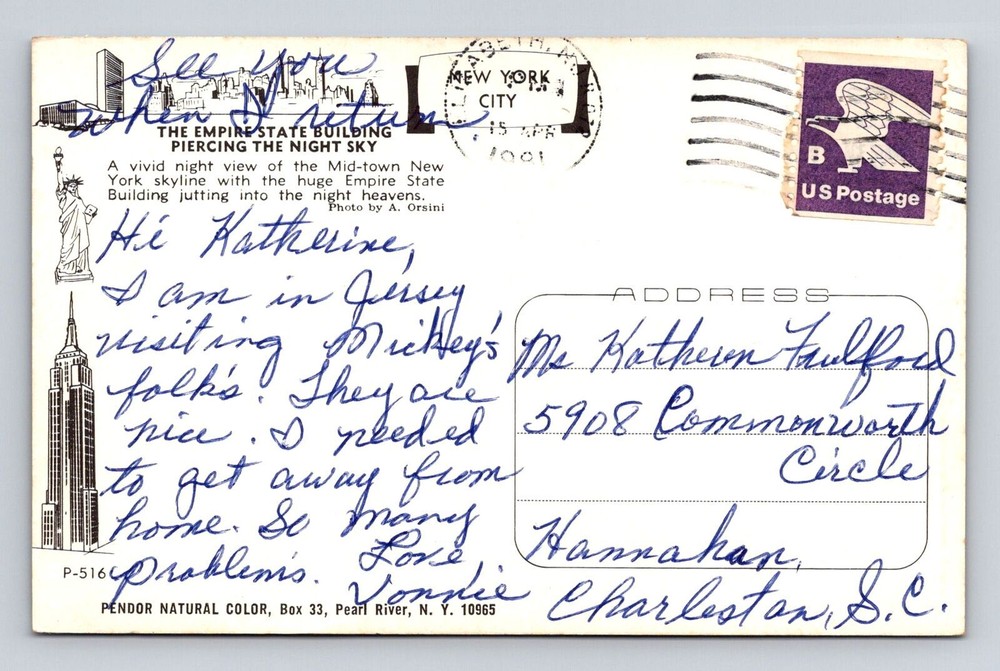 See you
when I return
NEW YORK
CITY
15 APR
1981
THE EMPIRE STATE BUILDING
PIERCING THE NIGHT SKY
A vivid night view of the Mid-town New
York skyline with the huge Empire State
Building jutting into the night heavens.
Photo by A. Orsini
B
US Postage
Hi Katherine,
I am in Jersey
visiting Mickey's
folk's. They are
nice. I needed
to get away from
home. So many
problems. Love,
Vonnie
ADDRESS
Ms Katheren Faulford
5908 Commonworth
Circle
Hannahan,
Charleston, S.C.
P-516
PENDOR NATURAL COLOR, Box 33, Pearl River, N. Y. 10965